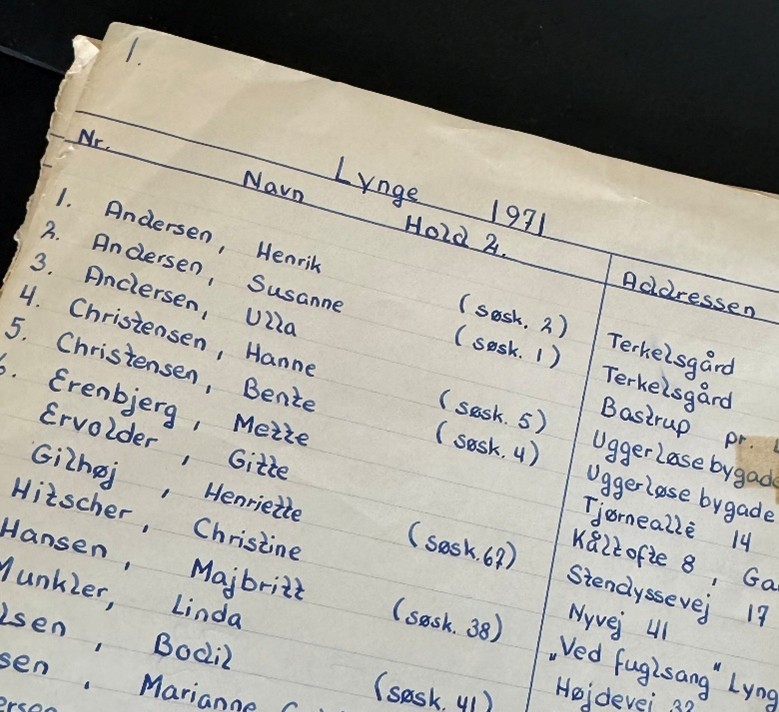 1.
Lynge 1971
Nr. Navn Hold 2. Addressen
1. Andersen, Henrik (søsk. 2) Terkelsgård
2. Andersen, Susanne (søsk. 1) Terkelsgård
3. Andersen, Ulla Bastrup pr.
4. Christensen, Hanne (søsk. 5) Uggerløse bygade
5. Christensen, Bente (søsk. 4) Uggerløse bygade
6. Erenbjerg, Mette Tjørneallé 14
Ervolder, Gitte Kåltofte 8, Ga
Gilhøj, Henriette (søsk. 67) Stendyssevej 17
Hitscher, Christine Nyvej 41
Hansen, Majbritt (søsk. 38) „Ved fuglsang" Lyng
Munkler, Linda Højdevej 32
lsen, Bodil (søsk. 41)
sen, Marianne